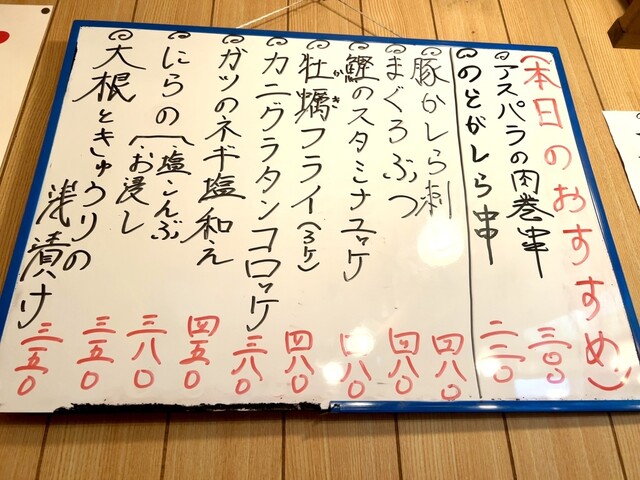 (本日のおすすめ)
◎アスパラの肉巻串 三〇〇
◎のどがしら串 二二〇
◎豚かしら刺 四八〇
◎まぐろぶつ 四八〇
◎鰹のスタミナユッケ 四八〇
◎牡蠣フライ(3ケ) 四八〇
かき
◎カニグラタンコロッケ 三八〇
◎ガツのネギ塩和え 四五〇
◎にらの 塩こんぶ 三八〇
・お浸し 三五〇
◎大根ときゅうりの
浅漬け 三五〇